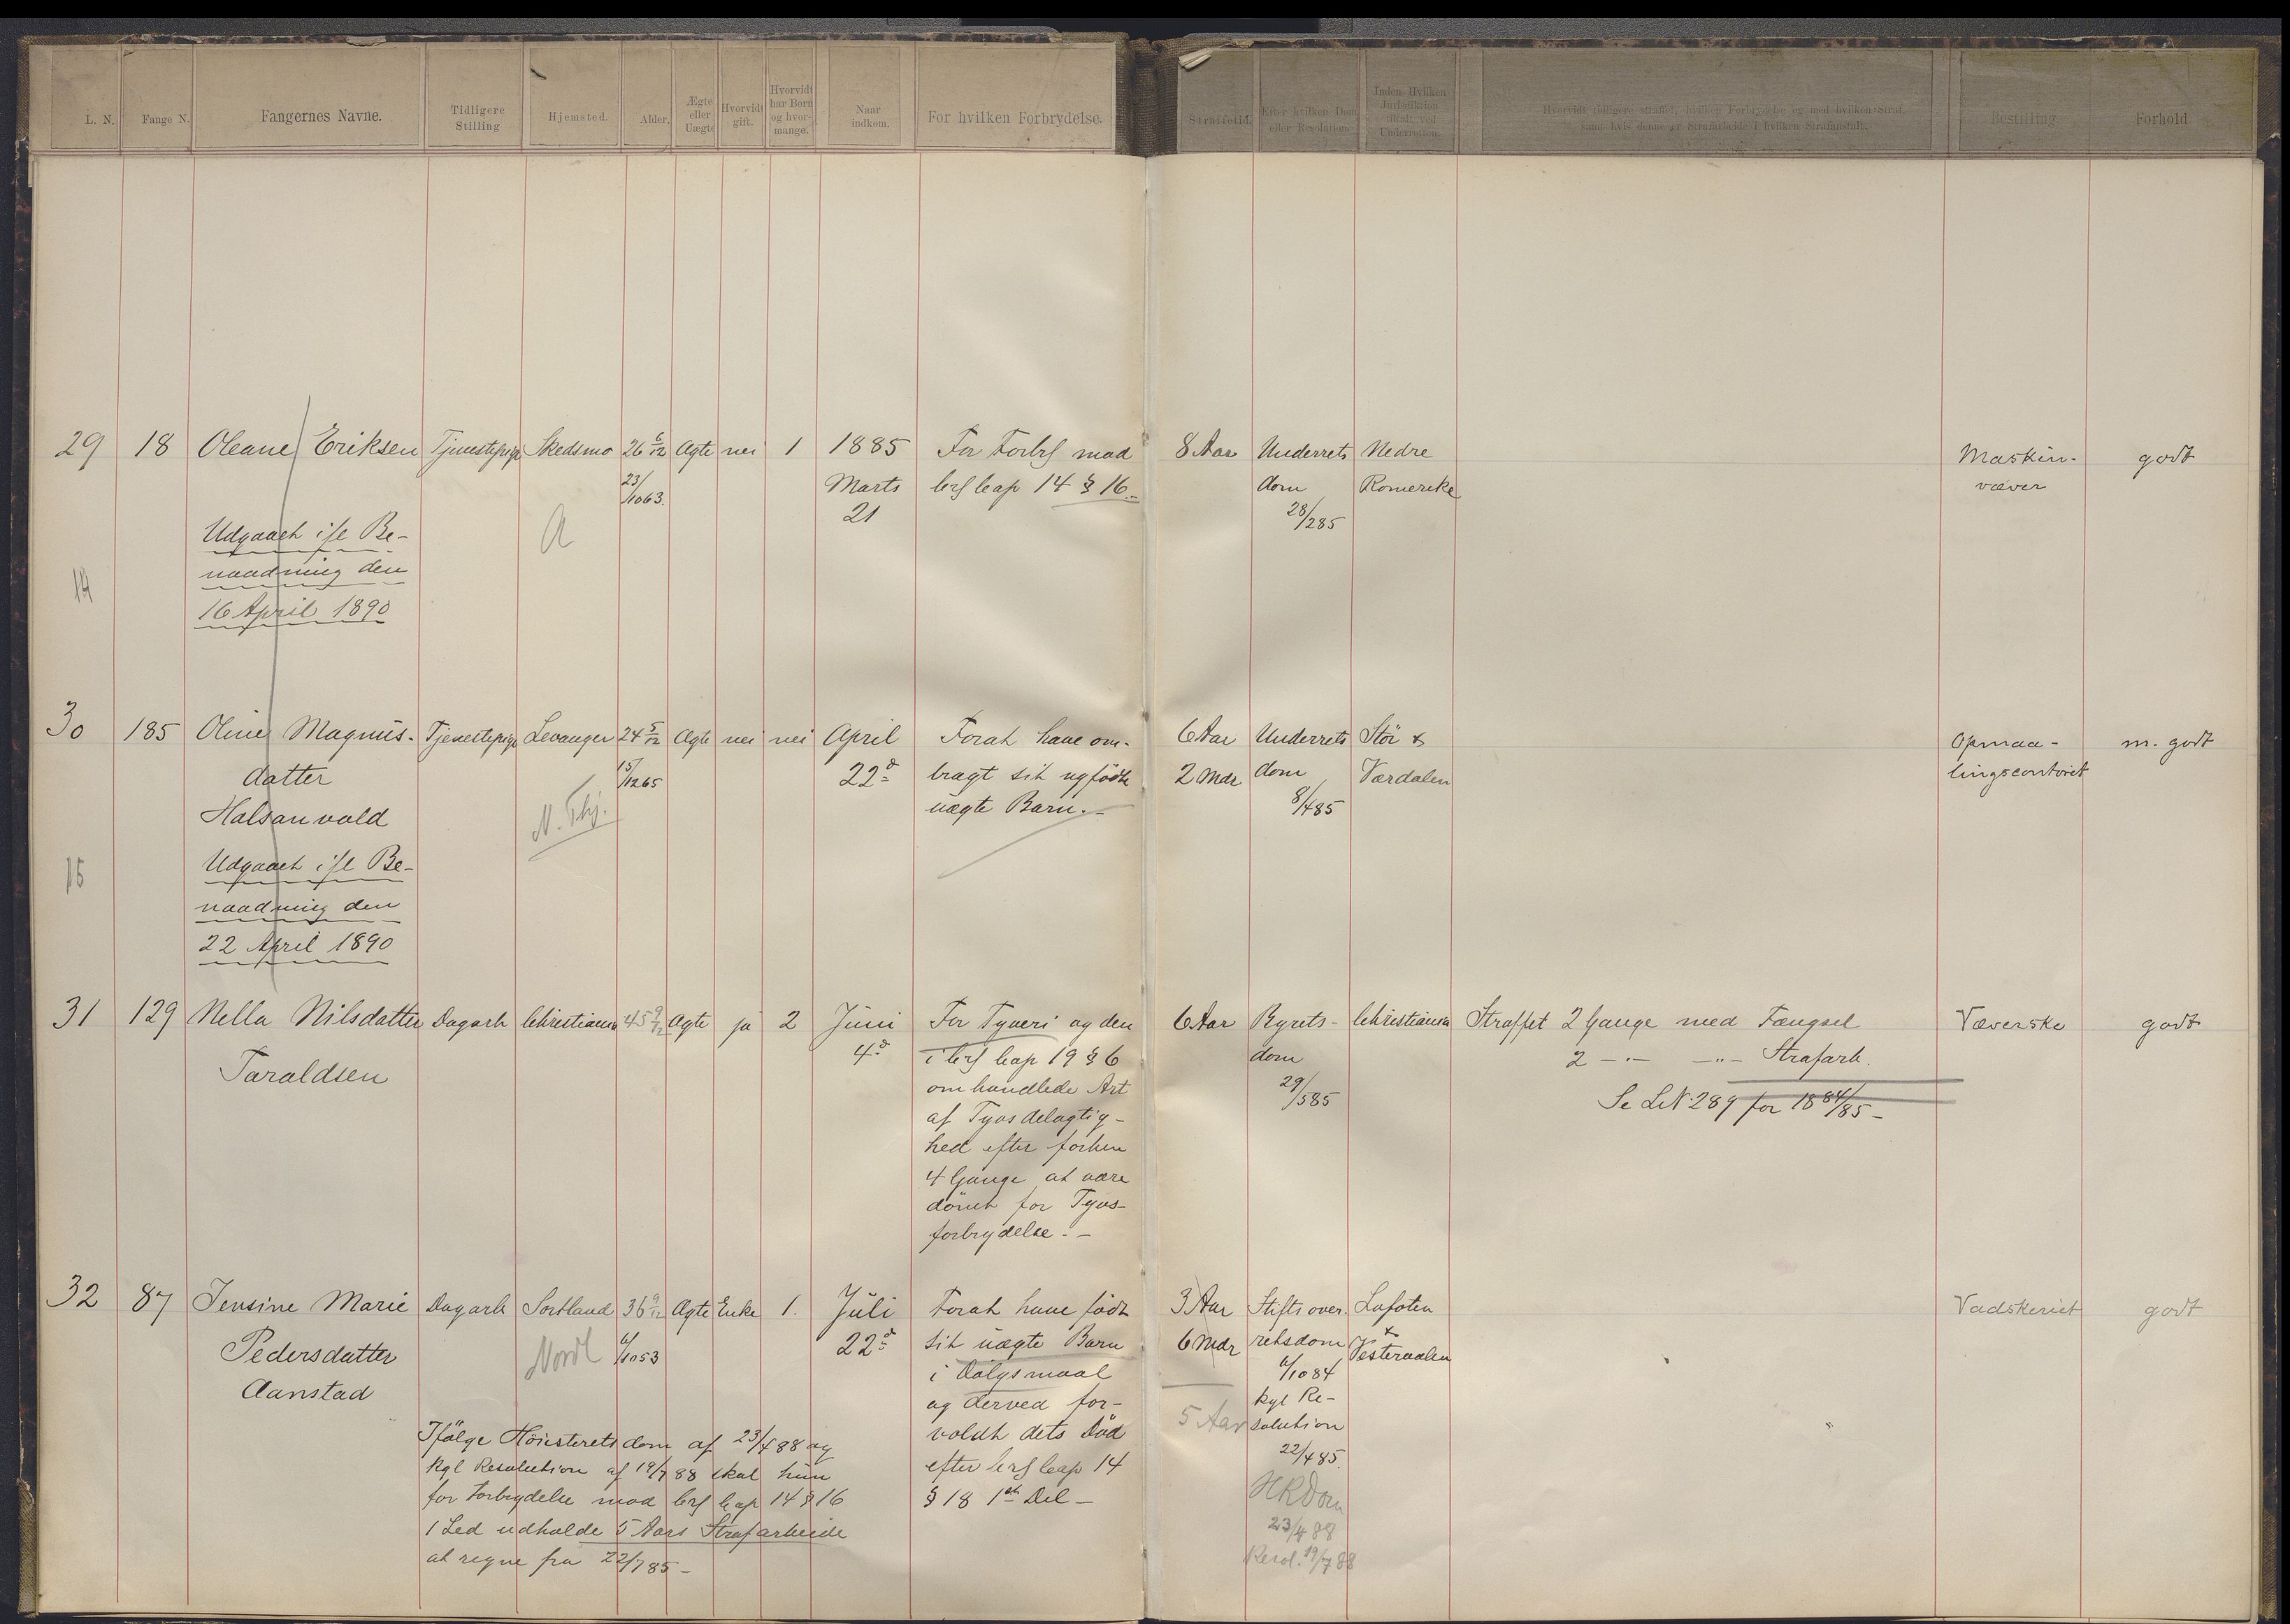 L. N. Fange N. Fangernes Navne. Tidligere Stilling Hjemsted. Alder. Ægte eller Uægte Hvorvidt gift. Hvorvidt har Børn og hvor-mange. Naar indkom. For hvilken Forbrydelse. Straffetid. Efter hvilken Dom eller Resolution. Inden Hvilken Jurisdiktion tiltalt ved Underretten. Hvorvidt tidligere straffet, hvilken Forbrydelse og med hvilken Straf, samt hvis denne er Strafarbeide i hvilken Strafanstalt. Bestilling Forhold
29 18 Oleane Eriksen Tjenestepige Skedsmo 26 6/12 Ægte nei 1 1885 For Forbr mod 8 Aar Underrets Nedre Maskin- godt
23/1063. Marts Crl Cap 14 § 16.- dom Romerike væver
21 28/285
Udgaaet ifl Be- A
naadning den
14
16 April 1890
30 185 Oline Magnus- Tjenestepige Levanger 24 5/12 Ægte nei nei April Forat have om- 6 Aar Underrets Stör & Opmaa- m. godt
datter 15/1265 22d bragt sit nyfödte 2 Mdr dom Værdalen lingscontoret
Halsanvald N. Thj. uægte Barn.- 8/485
Udgaaet ifl Be-
15
naadning den
22 April 1890
31 129 Nella Nilsdatter Dagarb Christiania 45 9/12 Ægte ja 2 Juni For Tyveri og den 6 Aar Byrets- Christiania Straffet 2 Gange med Fængsel Væverske godt
4d i Crl Cap 19 § 6 dom 2 -"- -"- Strafarb.
Taraldsen omhandlede Art 29/585 Se LN. 289 for 1884/85-
af Tyvsdelagtig-
hed efter forhen
4 Gange at være
dömt for Tyvs-
forbrydelse.-
32 87 Jensine Marie Dagarb Sortland 36 9/12 Ægte Enke 1. Juli Forat have födt 3 Aar Stiftsover- Lofoten Vadskeriet godt
Pedersdatter Nordl 6/1053 22d sit uægte Barn 6 Mdr retsdom & Vesteraalen
Aanstad i Dölgsmaal 6/1084
og derved for- kgl Re-
Ifölge Höiesteretsdom af 23/4 88 og voldt dets Död 5 Aar solution
Kgl Resolution af 19/7 88 skal hun efter Crl Cap 14 22/485.
for Forbrydelse mod Crl Cap 14 § 16 § 18 1st Del - HRDom
1 Led udholde 5 Aars Strafarbeide 23/4 88
at regne fra 22/785- Resol. 19/7 88